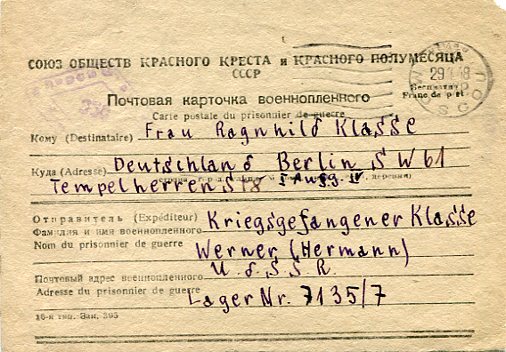 СОЮЗ ОБЩЕСТВ КРАСНОГО КРЕСТА и КРАСНОГО ПОЛУМЕСЯЦА
СССР
29
Бесплатно
Franc de port
Почтовая карточка военнопленного
Carte postale du prisonnier de guerre
Кому (Destinataire) Frau Ragnhild Klasse
Куда (Adresse) Deutschland Berlin SW61
Tempelherrenst 8 I Aufg. IV
Отправитель (Expéditeur) Kriegsgefangener Klasse
Фамилия и имя военнопленного
Nom du prisonnier de guerre Werner (Hermann)
Почтовый адрес военнопленного U d S S R.
Adresse du prisonnier de guerre Lager Nr. 7135/7
16-я тип. Зак. 395